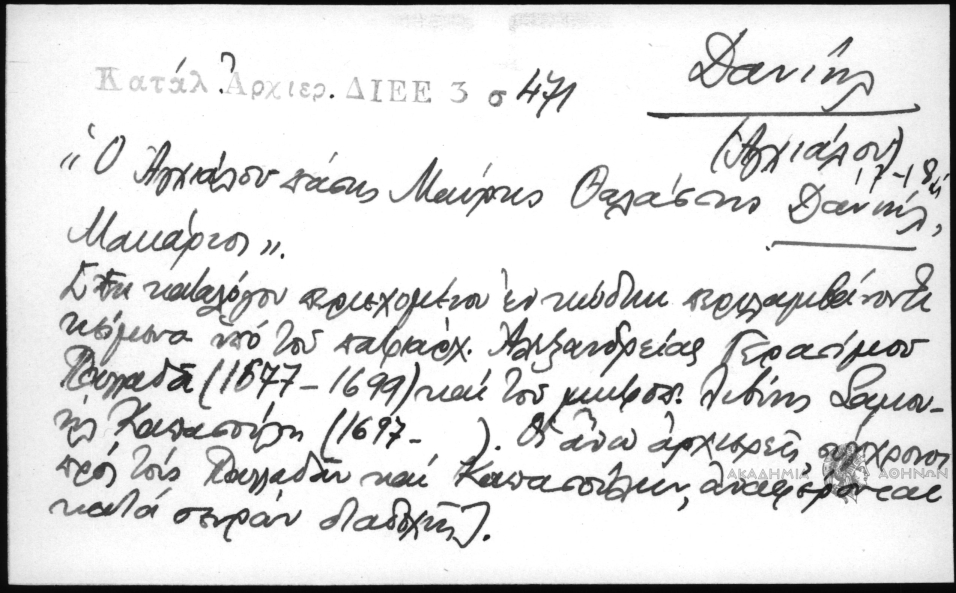 Κατάλ. Ἀρχιερ. ΔΙΕΕ 3 σ 471
Δανιήλ
(Ἀγχιάλου)
17-18
"Ὁ Ἀγχιάλου πάσης Μαύρης Θαλάσσης Δανιήλ,
Μακάριος".
καταλόγου περιεχομένου ἐν κώδικι περιλαμβάνοντι
κείμενα ὑπό τοῦ πατριάρχ. Ἀλεξανδρείας Γερασίμου
Παλλαδᾶ (1677-1699) καί τοῦ μητροπ. Λιβύης Σαμου-
ήλ Καπασούλη (1697- ). Οἱ ἄνω ἀρχιερεῖς, σύγχρονοι
πρός τούς Παλλαδᾶν καί Καπασούλην, ἀναφέρονται
κατά σειράν διαδοχῆς].
ΑΚΑΔΗΜΙΑ ΑΘΗΝΩΝ